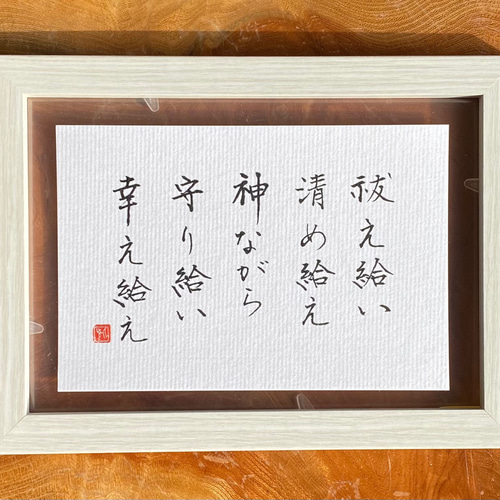 祓え給い
清め給え
神ながら
守り給い
幸え給え